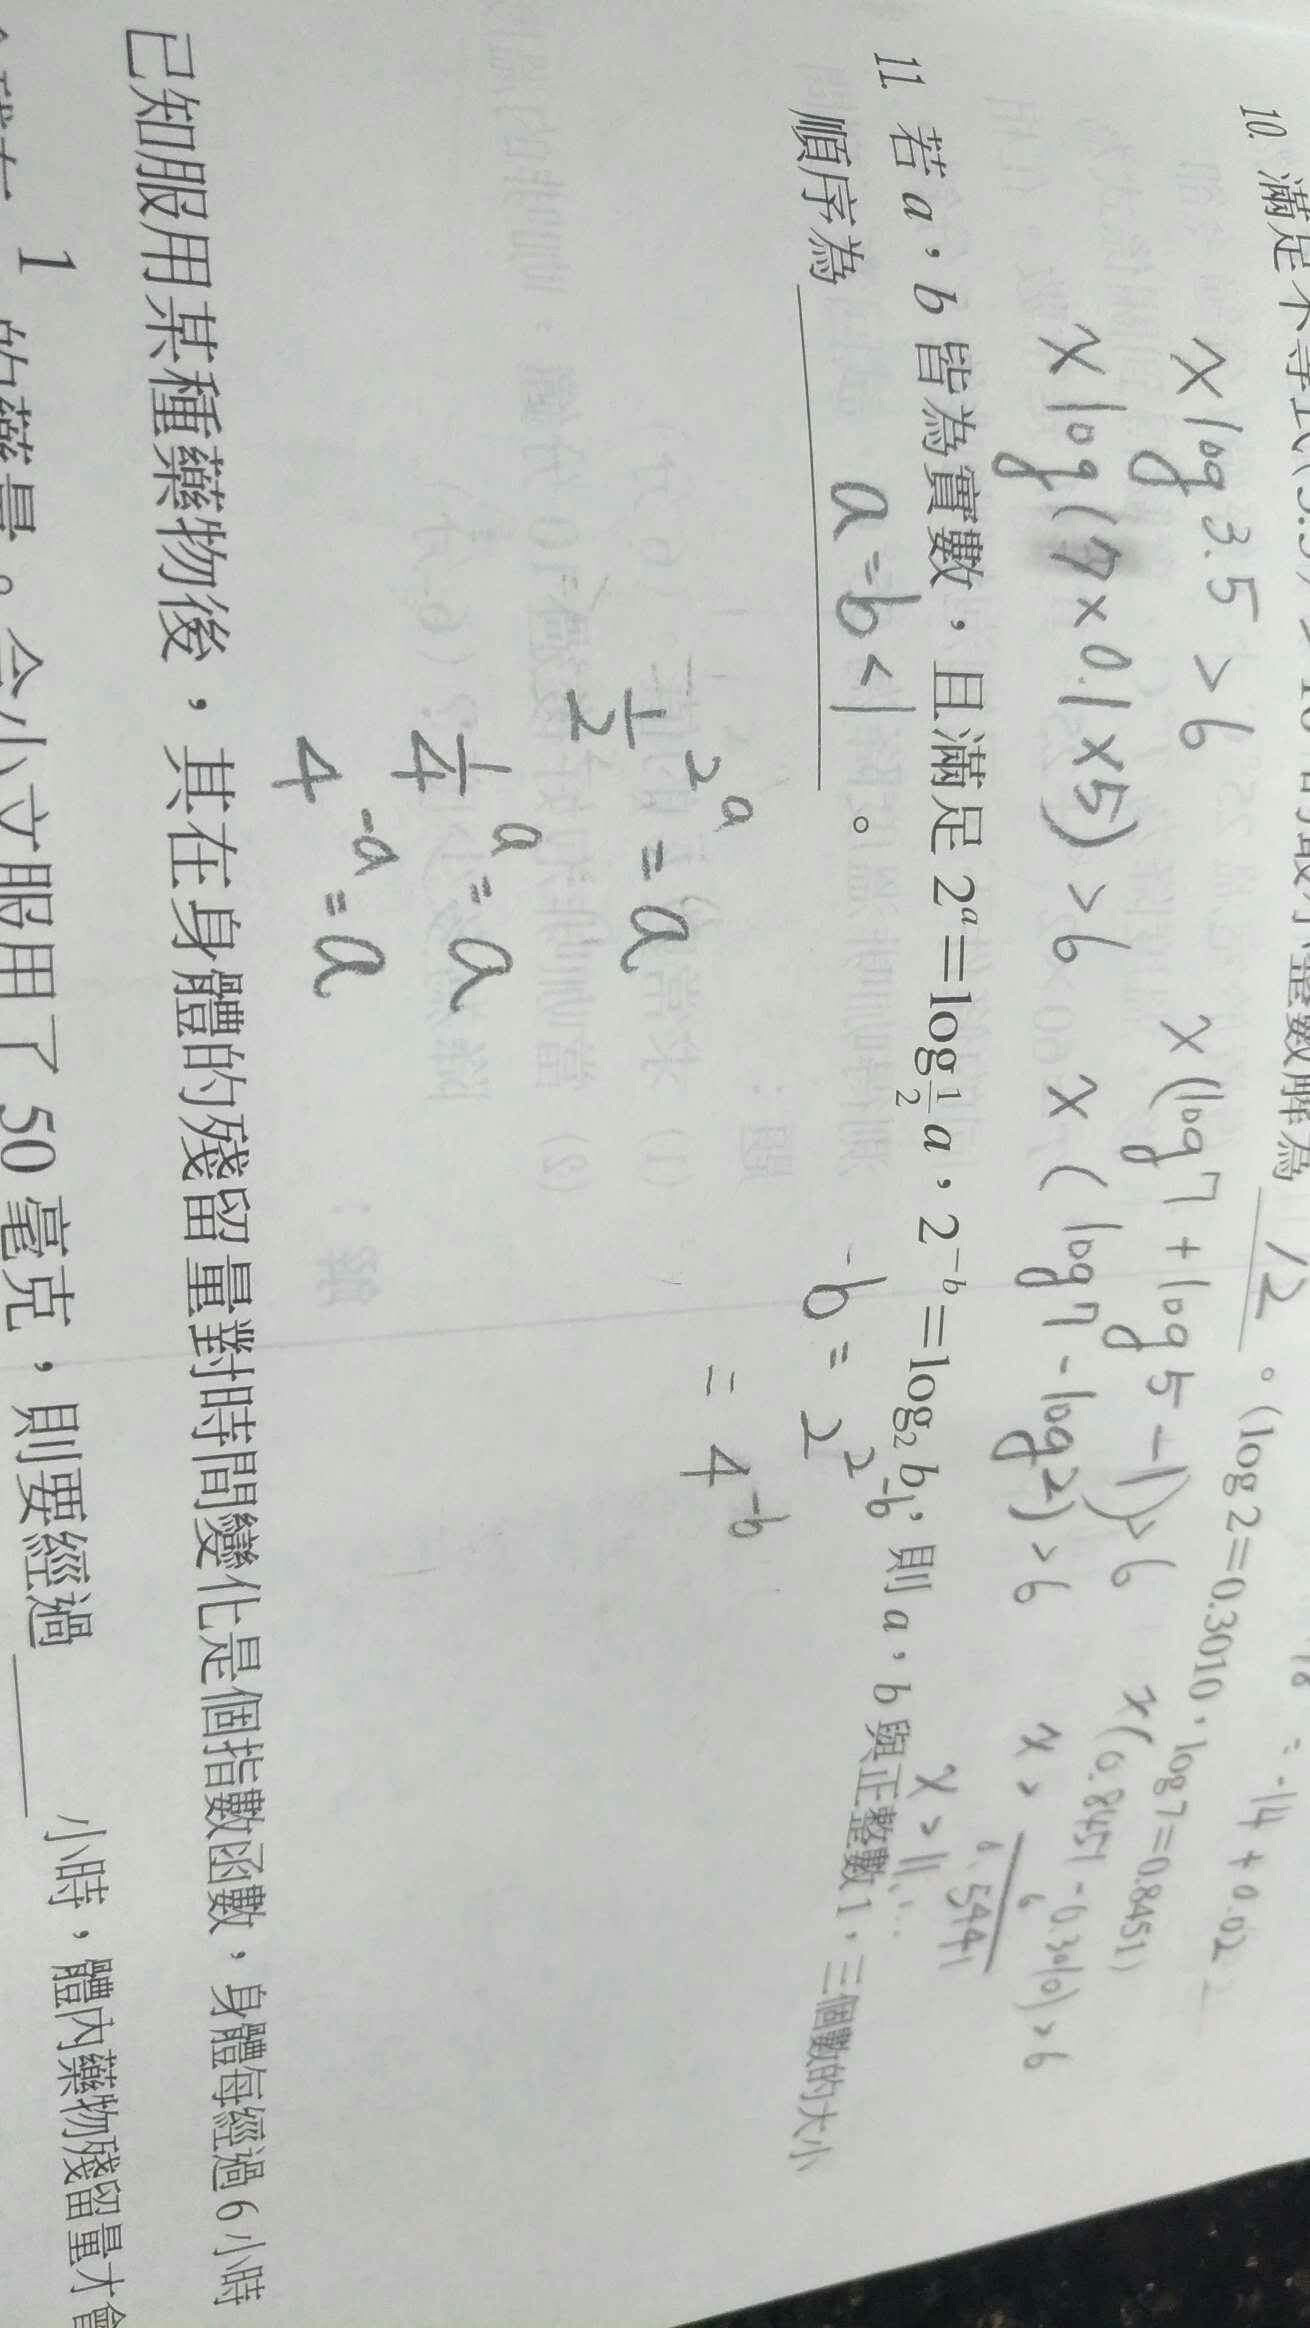 = -14 + 0.02
10. 滿足不等式 的最小整數解為 12 。(log 2=0.3010,log 7=0.8451)
x log 3.5 > 6
x(log 7 + log 5 - 1) > 6
x(0.8451 - 0.3010) > 6
x log (7 × 0.1 × 5) > 6
x ( log 7 - log 2) > 6
x > 6/0.5441
x > 11,...
11. 若 a,b 皆為實數,且滿足 2^a=log_{1/2} a,2^{-b}=log_2 b,則 a,b 與正整數 1,三個數的大小
順序為 a=b<1 。
-b = 2^{2^{-b}}
= 4^{-b}
1/2^{2^a} = a
1/4^a = a
4^{-a} = a
已知服用某種藥物後,其在身體的殘留量對時間變化是個指數函數,身體每經過 6 小時
1 的藥量。今小立服用了 50 毫克,則要經過 小時,體內藥物殘留量才會